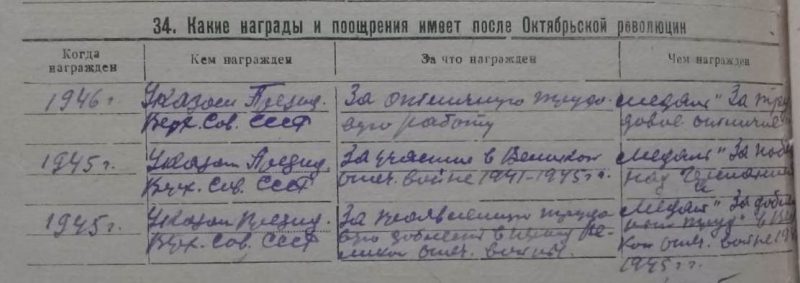 34. Какие награды и поощрения имеет после Октябрьской революции
Когда награжден
Кем награжден
За что награжден
Чем награжден
1946 г.
Указом Презид.
Верх. Сов. СССР
За отличную трудо-
вую работу
медаль "За тру
довое отличие
1945 г.
Указом Презид.
Верх. Сов. СССР
За участие в Великой
отеч. войне 1941-1945 г.
Медаль "За побе
над Германией
1945 г.
Указом Презид.
Верх. Сов. СССР
За проявленную трудо
вую доблесть в период Ве-
ликой отеч. войны.
Медаль "За добле
труд" в Ве
кой отеч. войне 19
1945 г.